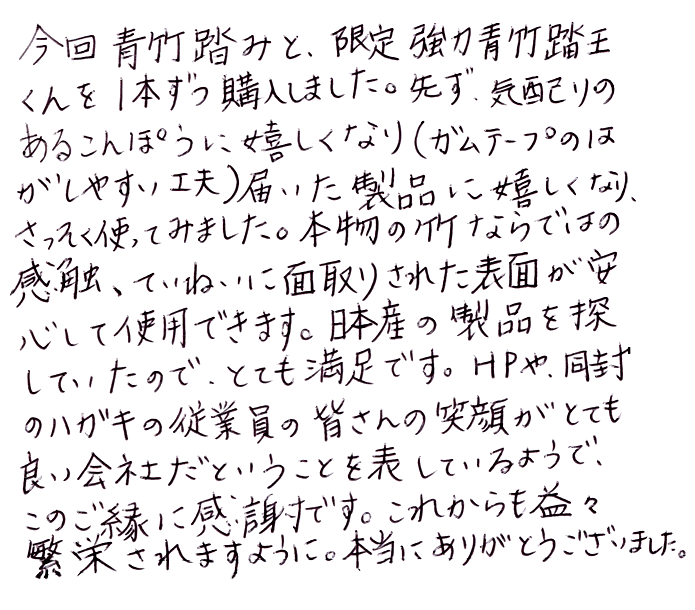 今回青竹踏みと、限定強力青竹踏王
くんを1本ずつ購入しました。先ず、気配りの
あるこんぽうに嬉しくなり(ガムテープのは
がしやすい工夫)届いた製品に嬉しくなり、
さっそく使ってみました。本物の竹ならではの
感触、ていねいに面取りされた表面が安
心して使用できます。日本産の製品を探
していたので、とても満足です。HPや、同封
のハガキの従業員の皆さんの笑顔がとても
良い会社だということを表しているようで、
このご縁に感謝です。これからも益々
繁栄されますように。本当にありがとうございました。